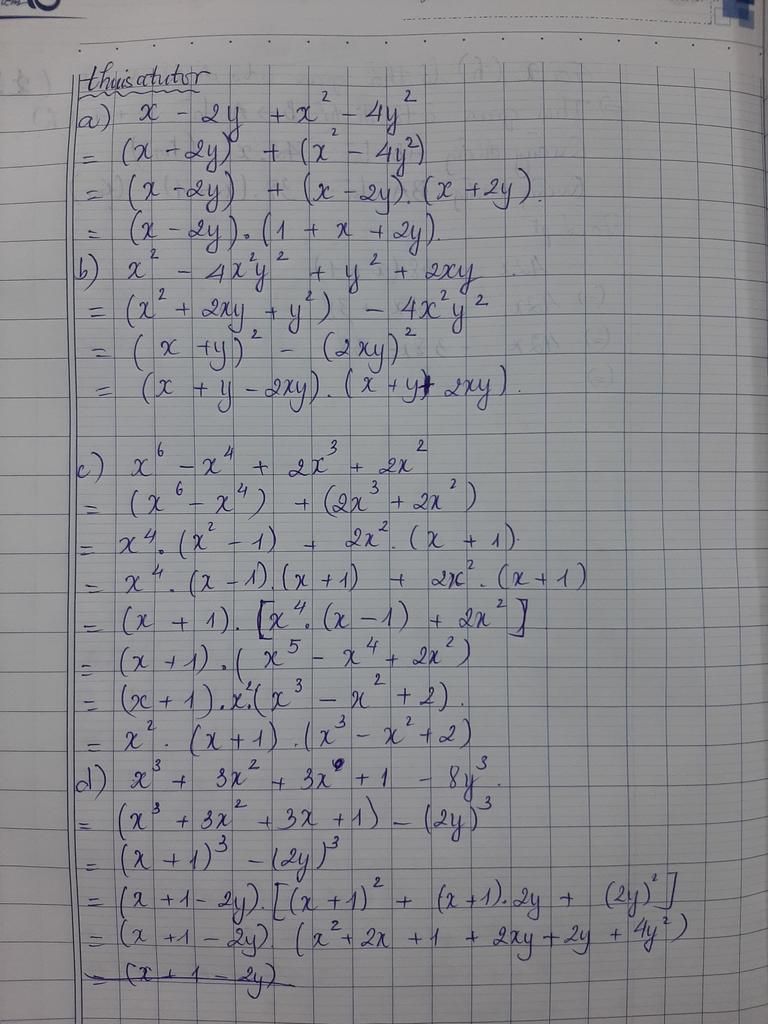 thuisatutor
a) x - 2y + x² - 4y²
= (x - 2y) + (x² - 4y²)
= (x - 2y) + (x - 2y).(x + 2y).
= (x - 2y).(1 + x + 2y).
b) x² - 4x²y² + y² + 2xy
= (x² + 2xy + y²) - 4x²y²
= (x + y)² - (2xy)²
= (x + y - 2xy).(x + y + 2xy).
c) x⁶ - x⁴ + 2x³ + 2x²
= (x⁶ - x⁴) + (2x³ + 2x²)
= x⁴.(x² - 1) + 2x².(x + 1).
= x⁴.(x - 1).(x + 1) + 2x².(x + 1)
= (x + 1).[x⁴.(x - 1) + 2x²]
= (x + 1).(x⁵ - x⁴ + 2x²)
= (x + 1).x².(x³ - x² + 2).
= x².(x + 1).(x³ - x² + 2)
d) x³ + 3x² + 3x + 1 - 8y³.
= (x³ + 3x² + 3x + 1) - (2y)³
= (x + 1)³ - (2y)³
= (x + 1 - 2y).[(x + 1)² + (x + 1).2y + (2y)²]
= (x + 1 - 2y) (x² + 2x + 1 + 2xy + 2y + 4y²)
= (x + 1 - 2y)